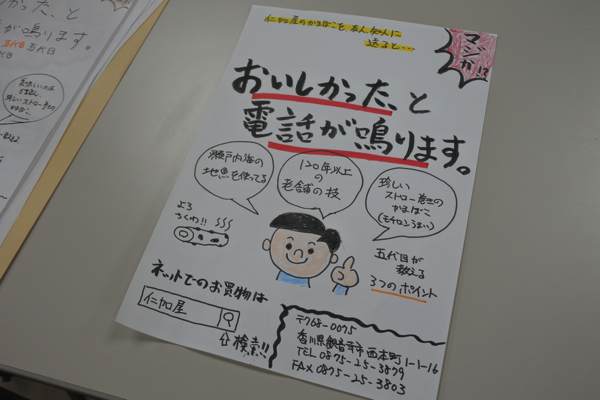 仁加屋のかまぼこを友人知人に
送ると…
マジか!?
おいしかった、と
電話が鳴ります。
瀬戸内海の
地魚を使ってる
120年以上
の
老舗の技
珍しい
ストロー巻きの
かまぼこ
(モチロンうまい)
よろ
ちくわ!!
五代目が
教える
3つのポイント
ネットでのお買物は
仁加屋
検索!!
〒768-0075
香川県観音寺市西本町1-1-16
TEL 0875-25-3879
FAX 0875-25-3803
た、と
鳴ります。
五代目